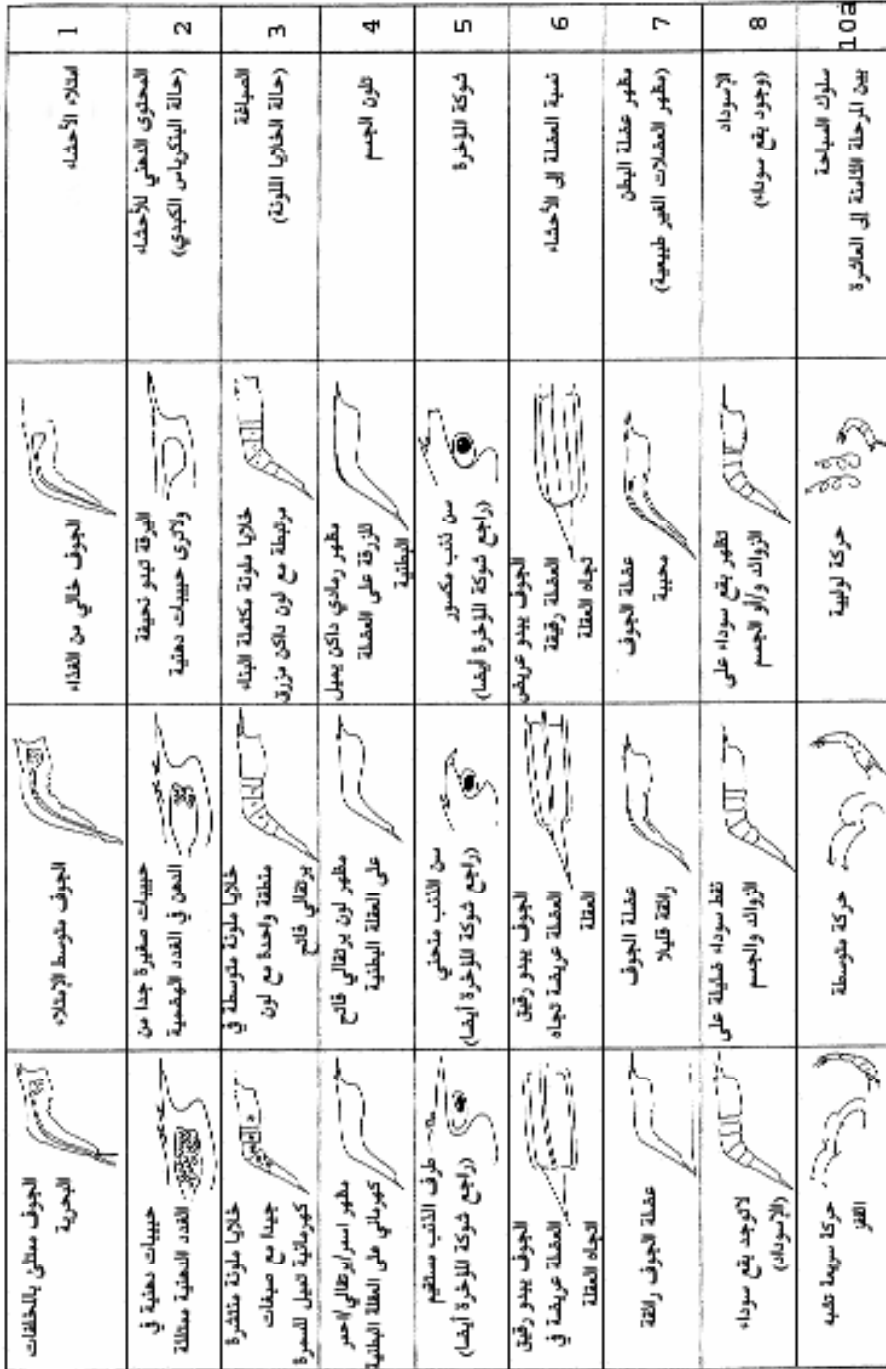 1
امتلاء الأحشاء
الجوف خالي من الغذاء
الجوف متوسط الإمتلاء
الجوف ممتلئ بالمخلفات
البحرية
2
المحتوى الدهني للأحشاء
(حالة البنكرياس الكبدي)
اليرقة تبدو نحيفة
ولاترى حبيبات دهنية
حبيبات صغيرة جدا من
الدهن في الغدد الهضمية
حبيبات دهنية في
الغدد الدهنية ممتلئة
3
الصباغة
(حالة الخلايا اللونة)
خلايا ملونة مكتملة البناء
مرتبطة مع لون داكن مزرق
خلايا ملونة متوسطة في
منطقة واحدة مع لون
برتقالي فاتح
خلايا ملونة منتشرة
جيدا مع صبغات
كهرمانية تميل للسمرة
4
تلون الجسم
مظهر رمادي داكن يميل
للزرقة على العضلة
البطنية
مظهر لون برتقالي فاتح
على العقلة البطنية
مظهر اسمر/برتقالي/احمر
كهرماني على العقلة البطنية
5
شوكة المؤخرة
سن ذنب مكسور
(راجع شوكة المؤخرة أيضا)
سن الذنب منحني
(راجع شوكة المؤخرة أيضا)
طرف الذنب مستقيم
(راجع شوكة المؤخرة أيضا)
6
نسبة العضلة إلى الأحشاء
الجوف يبدو عريض
العضلة رقيقة
تجاه العقلة
الجوف يبدو رقيق
العضلة عريضة تجاه
العقلة
الجوف يبدو رقيق
العضلة عريضة في
اتجاه العقلة
7
مظهر عضلة البطن
(مظهر العضلات الغير طبيعية)
عضلة الجوف
محببة
عضلة الجوف
رائقة قليلا
عضلة الجوف رائقة
8
الإسوداد
(وجود بقع سوداء)
تظهر بقع سوداء على
الزوائد و/أو الجسم
نقط سوداء ضئيلة على
الزوائد والجسم
لاتوجد بقع سوداء
(الإسوداد)
10a
سلوك السباحة
بين المرحلة الثامنة إلى العاشرة
حركة لولبية
حركة متوسطة
حركة سريعة تشبه
القفز